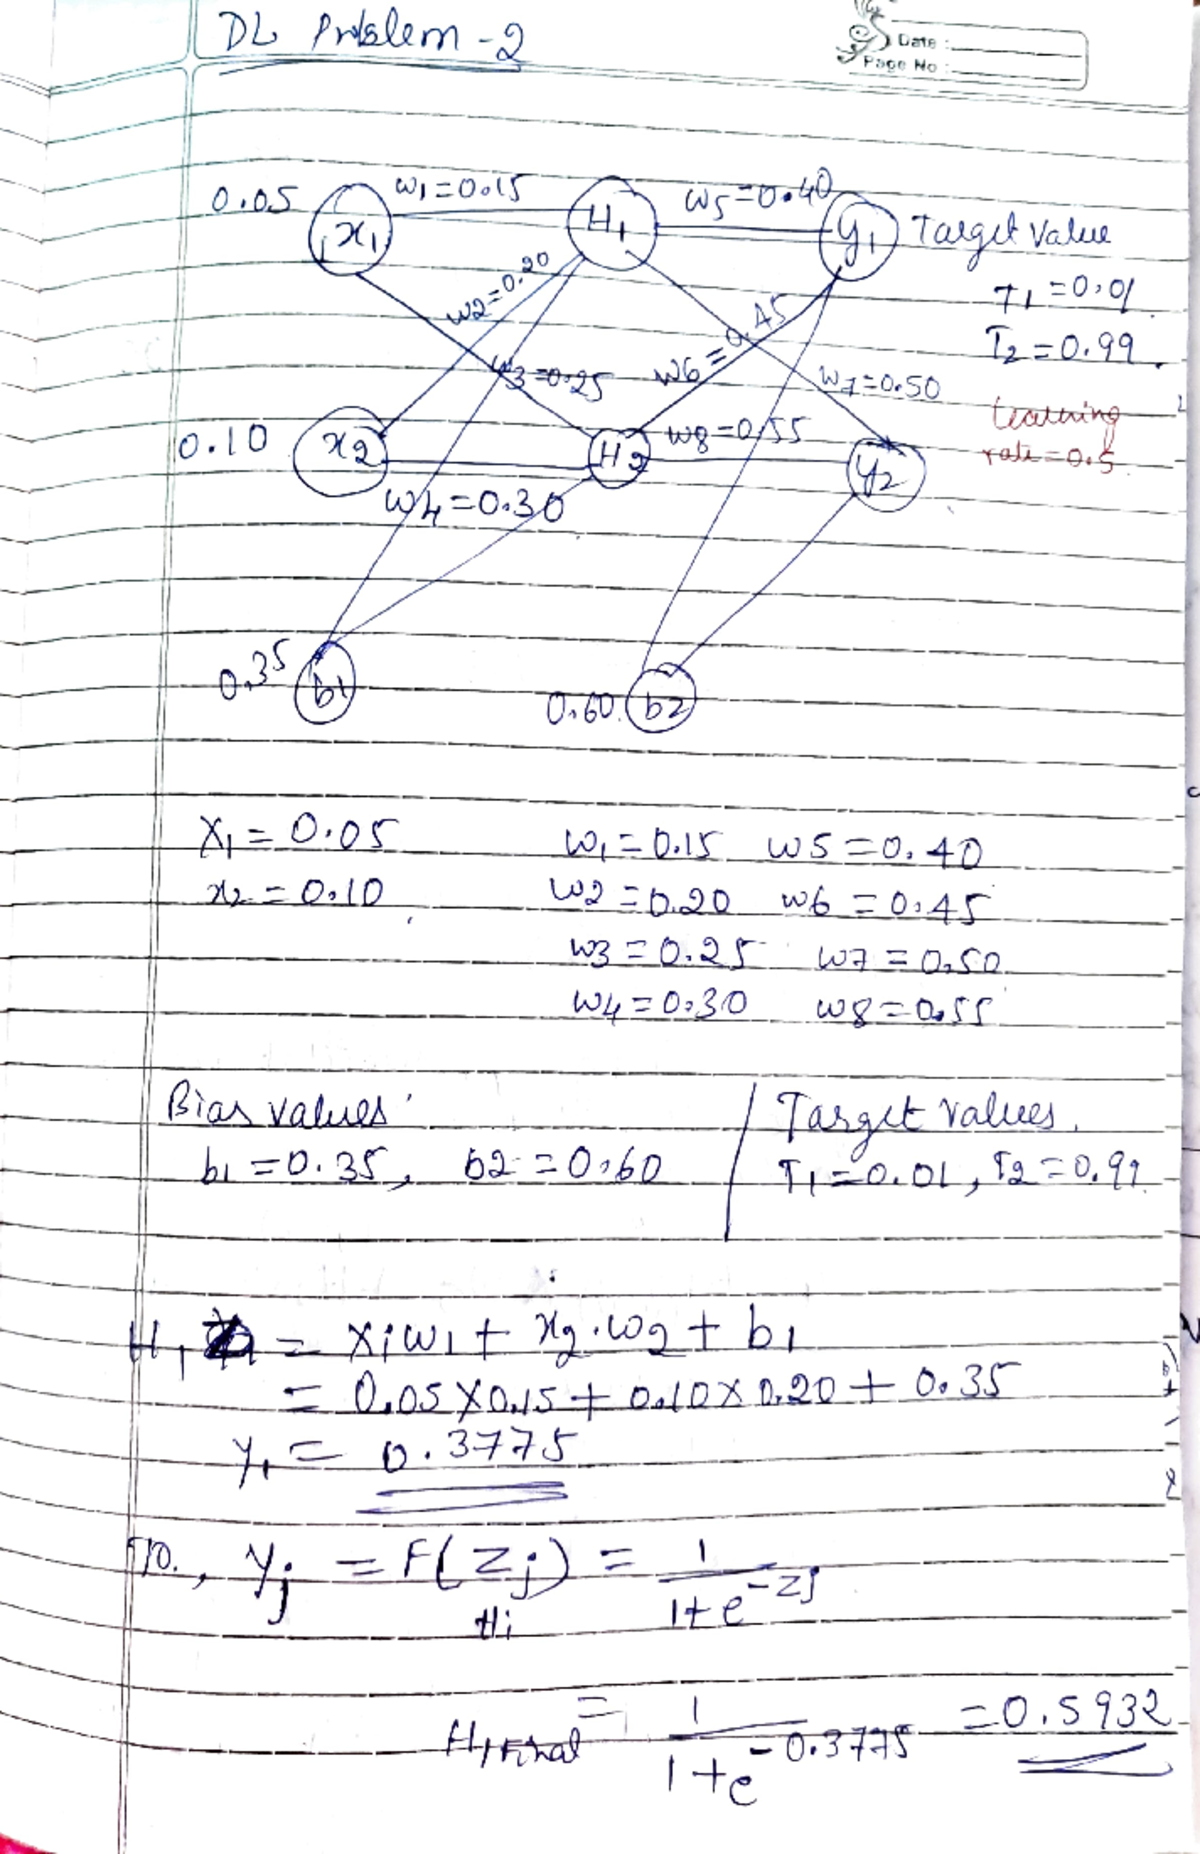 DL Problem - 2
Date :
Page No :
0.05 x1 w1=0.15 H1 w5=0.40 y1 Target Value
w2=0.20
T1 =0.01
T2 =0.99
w3=0.25 w6 = 0.45 w7=0.50
Learning
rate=0.5
0.10 x2 H2 w8=0.55 y2
w4=0.30
0.35 b1 0.60 b2
X1 = 0.05 w1 = 0.15 w5 = 0.40
x2 = 0.10 w2 = 0.20 w6 = 0.45
w3 = 0.25 w7 = 0.50
w4 = 0.30 w8 = 0.55
Bias values Target values,
b1 = 0.35, b2 = 0.60 T1 = 0.01, T2 = 0.99
H1 = x1w1 + x2.w2 + b1
= 0.05×0.15 + 0.10×0.20 + 0.35
y1 = 0.3775
yj = F(zj) = 1 / 1+e^-zj
Hi
H1 Final = 1 / 1+e^-0.3775 = 0.5932